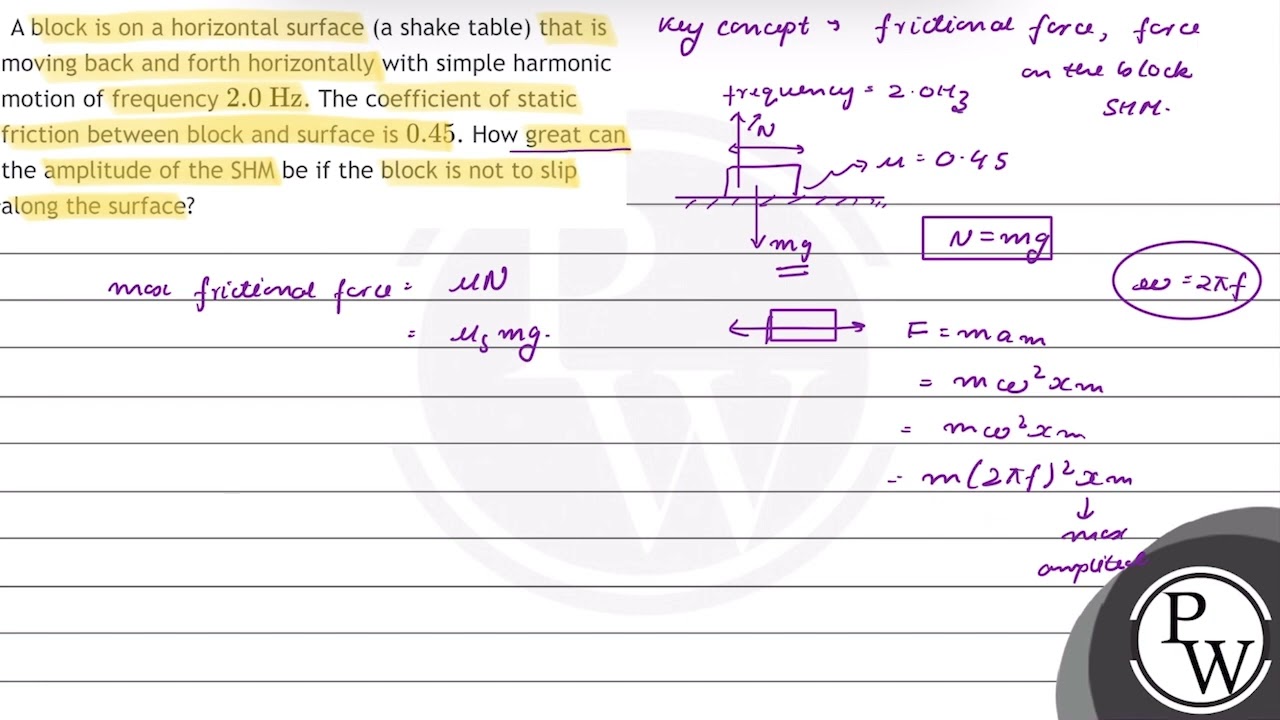 A block is on a horizontal surface (a shake table) that is
moving back and forth horizontally with simple harmonic
motion of frequency 2.0 Hz. The coefficient of static
friction between block and surface is 0.45. How great can
the amplitude of the SHM be if the block is not to slip
along the surface?
Key concept → frictional force, force
on the block
SHM.
frequency = 2.0Hz
N
μ = 0.45
mg
N = mg
ω = 2πf
max frictional force = μN
= μs mg.
F = m am
= mω²xm
= mω²xm
= m(2πf)²xm
↓
max
amplitude
P
W
PW